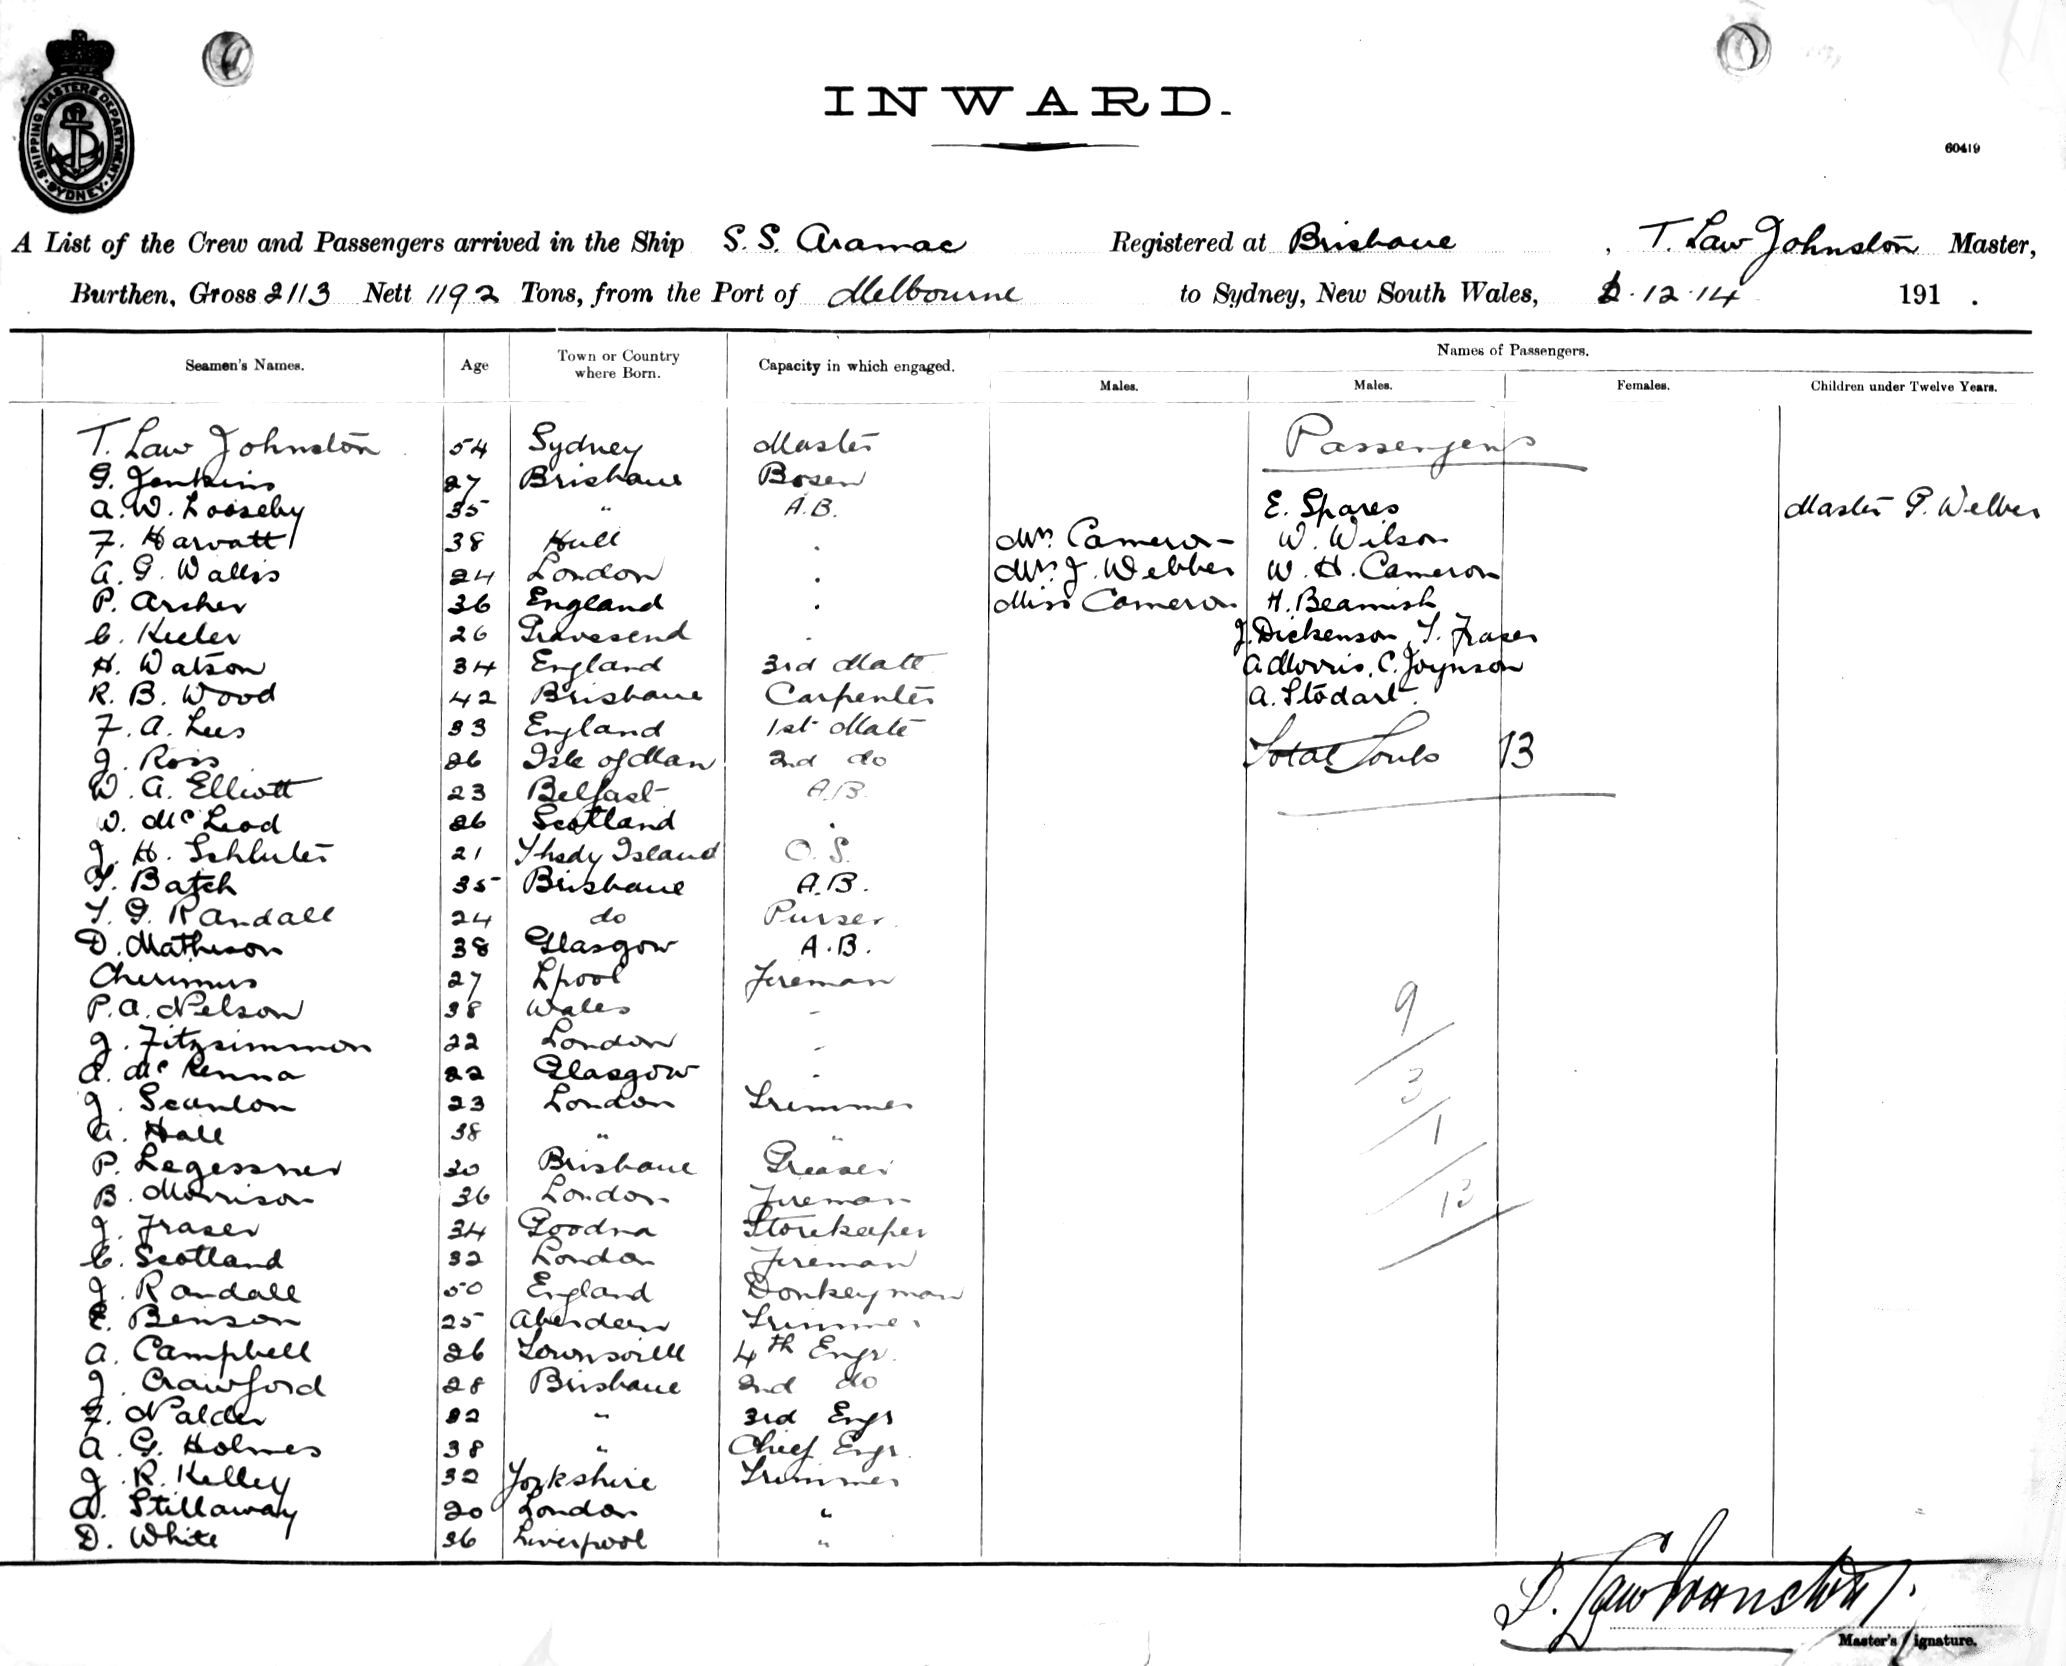 SHIPPING MASTERS DEPARTMENT · SYDNEY ·
INWARD.
60419
A List of the Crew and Passengers arrived in the Ship S. S. Aramac Registered at Brisbane , T. Law Johnston Master,
Burthen, Gross 2113 Nett 1192 Tons, from the Port of Melbourne to Sydney, New South Wales, 2.12.14 191 .
Seamen's Names. Age Town or Country where Born. Capacity in which engaged. Names of Passengers.
Males. Males. Females. Children under Twelve Years.
T. Law Johnston 54 Sydney Master Passengers
G. Jenkins 27 Brisbane Bosen
A. W. Looseby 35 " A.B. E. Spares Master G. Webber
F. Harvatt 38 Hull . Mrs Cameron W. Wilson
A. G. Wallis 24 London . Mrs J. Webber W. H. Cameron
P. Archer 36 England . Miss Cameron H. Beamish
C. Keeler 26 Gravesend . J. Dickenson, T. Fraser
H. Watson 34 England 3rd Mate A Morris, C. Joynson
R. B. Wood 42 Brisbane Carpenter A. Stodart.
F. A. Lees 33 England 1st Mate
J. Ross 26 Isle of Man 2nd do Total Souls 13
W. A. Elliott 23 Belfast A.B.
D. McLeod 26 Scotland .
J. H. Schluter 21 Island O. S.
T. Batch 35 Brisbane A.B.
T. G. Randall 24 do Purser.
D. Matheson 38 Glasgow A.B.
27 Lpool Fireman
P. A. Nelson 38 Wales - 9
J. Fitzsimmon 22 London -
A. McKenna 22 Glasgow . 3
J. Scanlon 23 London Trimmer 1
A. Hall 38 " "
P. Legessner 30 Brisbane Greaser
B. Morrison 36 London Fireman 13
J. Fraser 34 Goodna Storekeeper
C. Scotland 32 London Fireman
J. Randall 50 England Donkeyman
E. Benson 25 Aberdeen Trimmer
A. Campbell 26 Townsville 4th Engr.
J. Crawford 28 Brisbane 2nd do
F. Nalder 32 " 3rd Engr
A. G. Holmes 38 " Chief Engr.
J. R. Kelley 32 Yorkshire Trimmer
A. Stillaway 20 London "
D. White 36 Liverpool "
T. Law Johnston
Master's Signature.